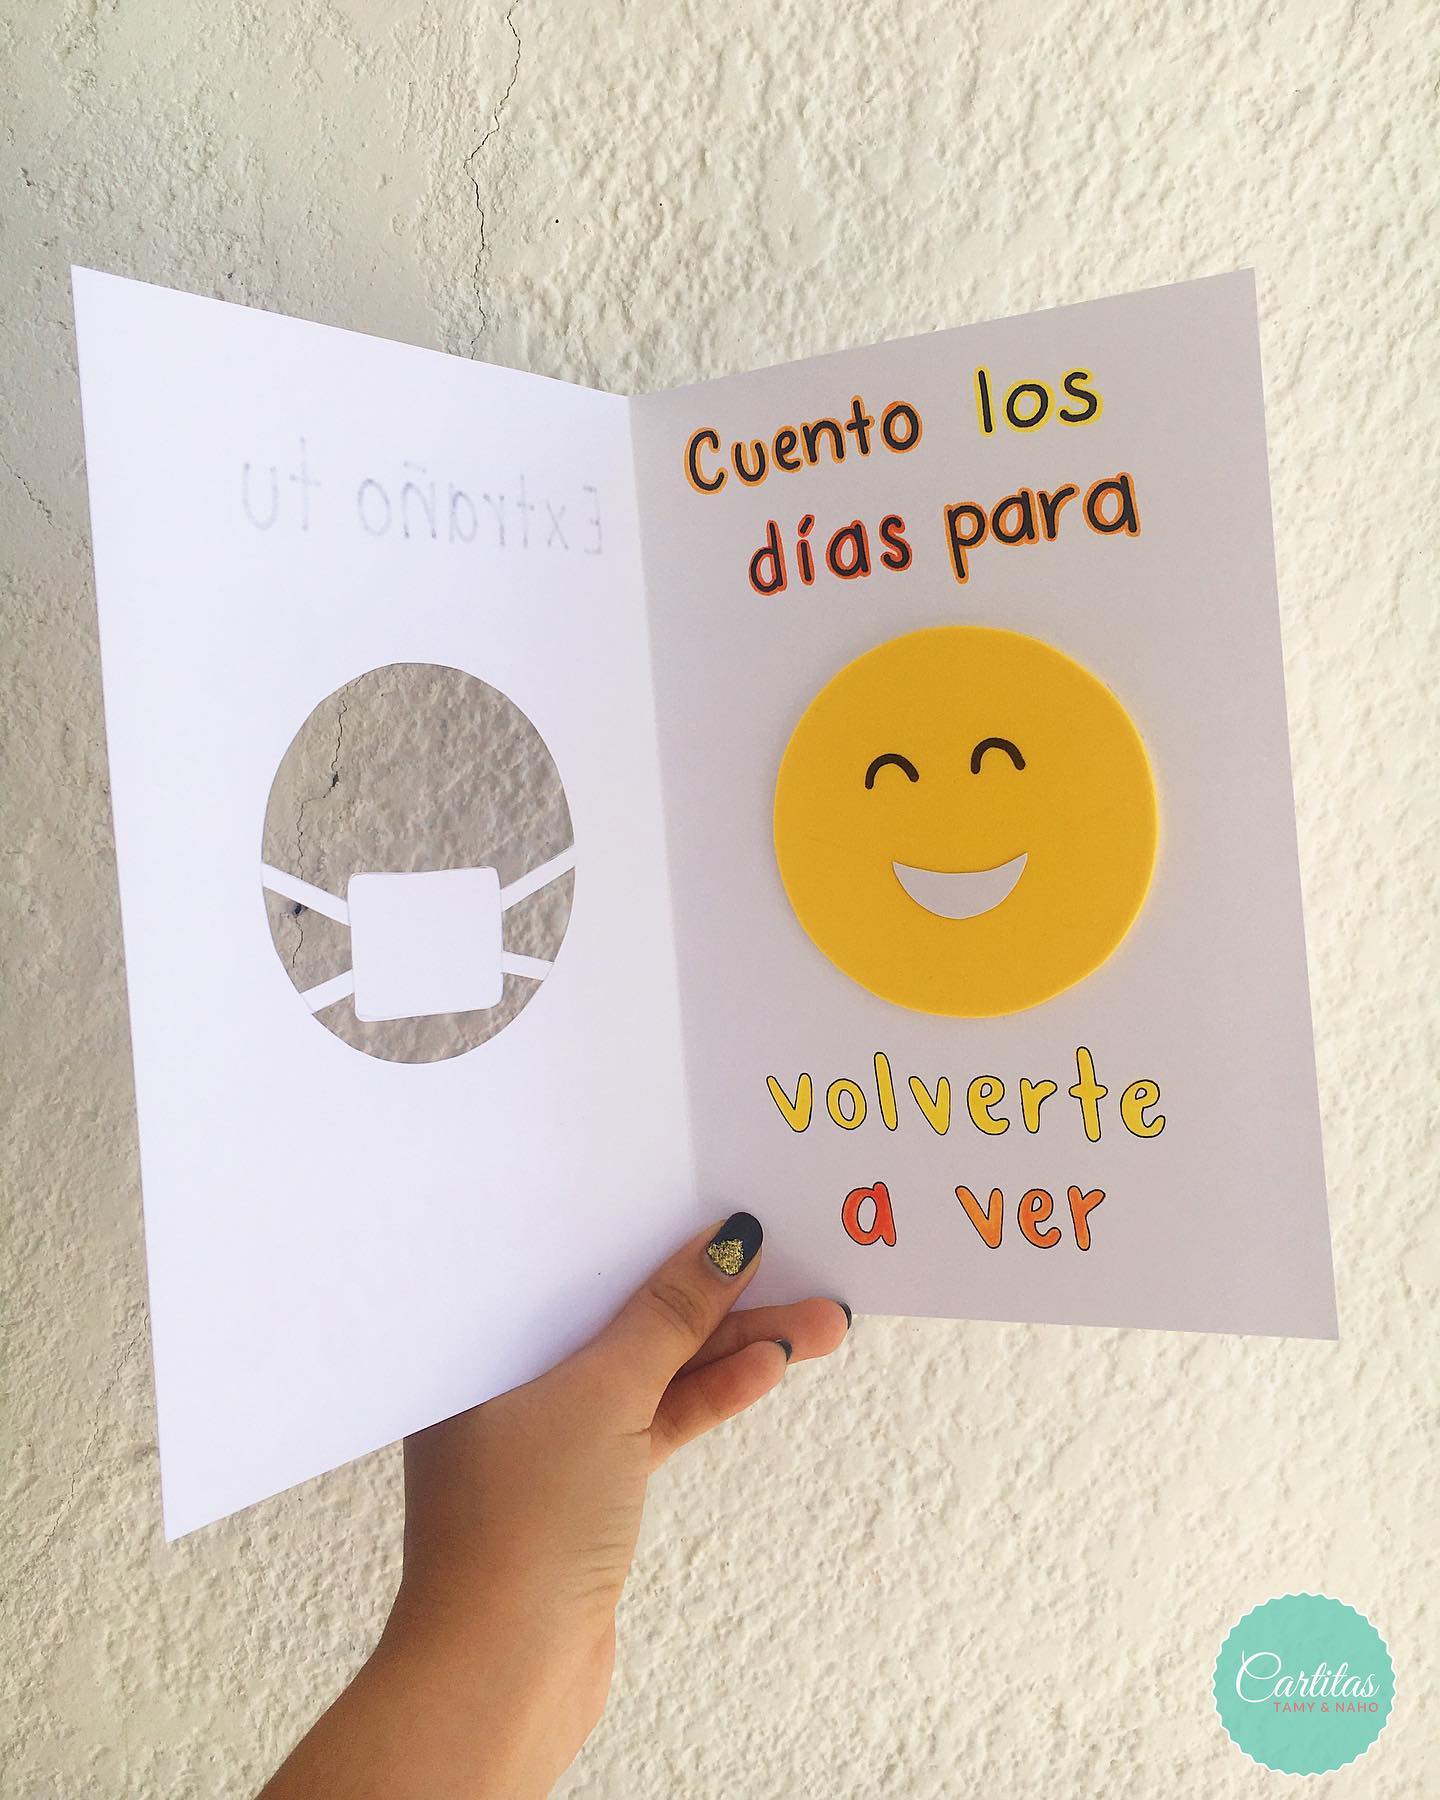 Extraño tu
Cuento los
días para
volverte
a ver
Cartitas
TAMY & NAHO